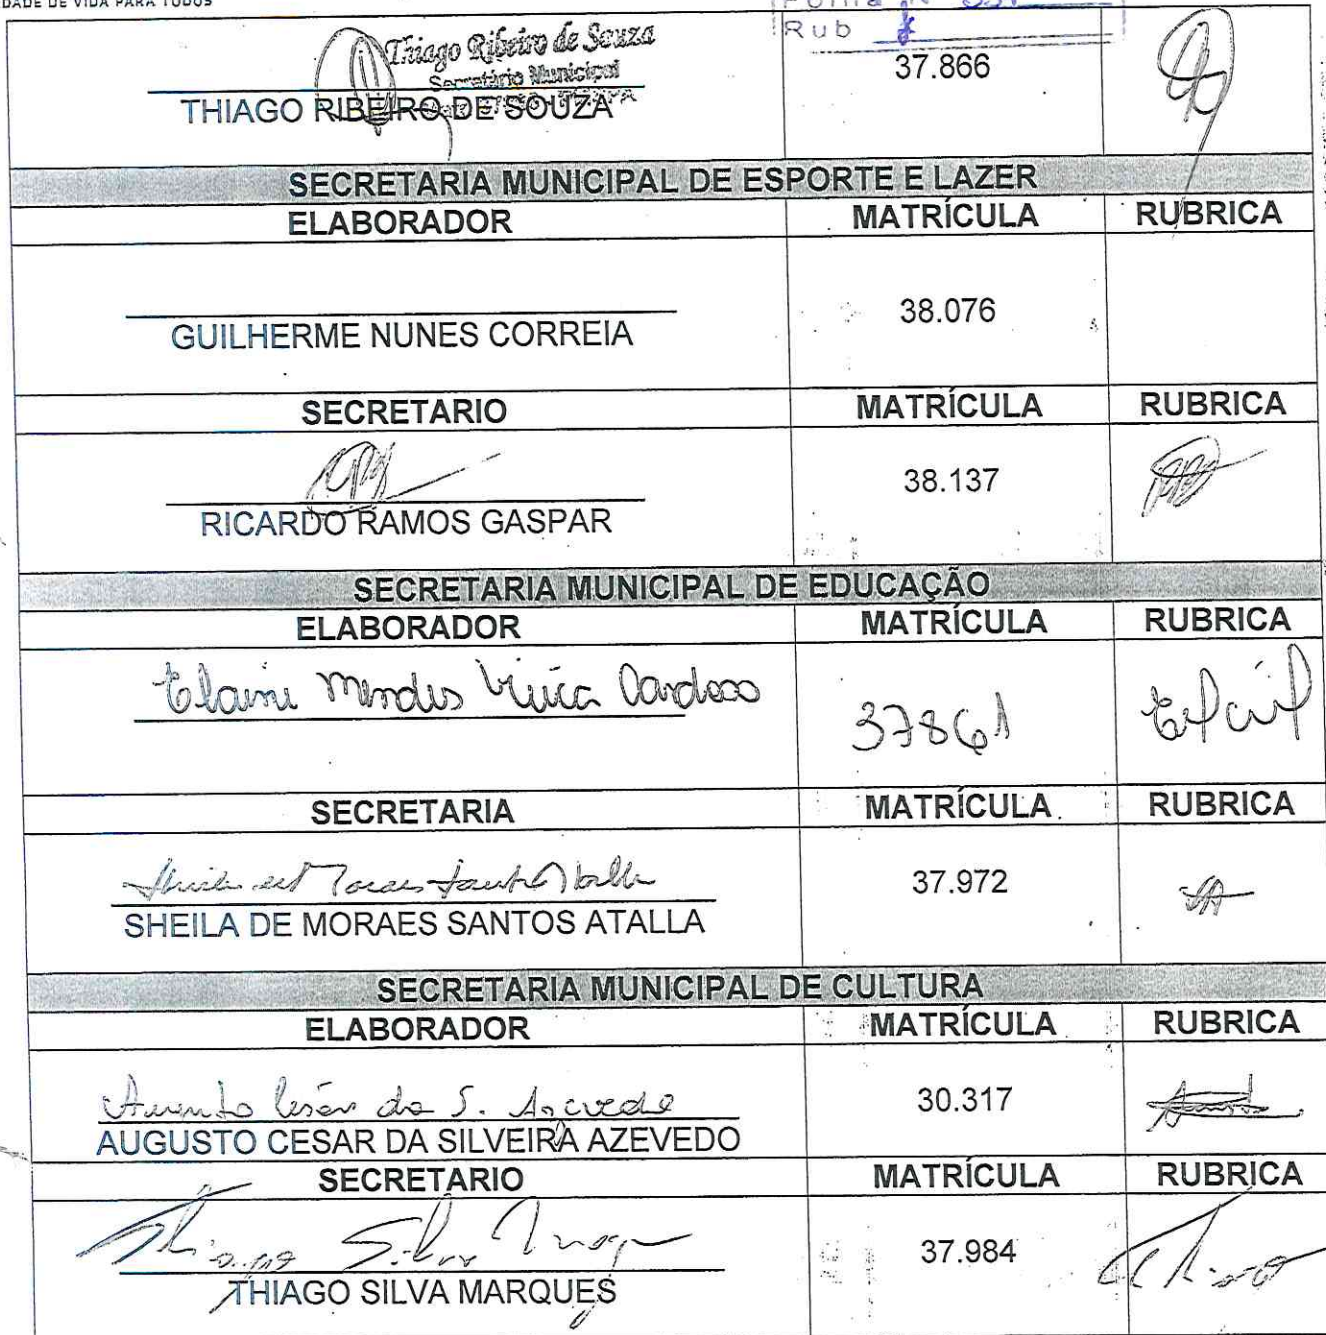 DADE DE VIDA PARA TODOS
Folha Nº
Rub
Thiago Ribeiro de Souza
Secretário Municipal
THIAGO RIBEIRO DE SOUZA 37.866
SECRETARIA MUNICIPAL DE ESPORTE E LAZER
ELABORADOR MATRÍCULA RUBRICA
GUILHERME NUNES CORREIA 38.076
SECRETARIO MATRÍCULA RUBRICA
RICARDO RAMOS GASPAR 38.137
SECRETARIA MUNICIPAL DE EDUCAÇÃO
ELABORADOR MATRÍCULA RUBRICA
Elaine Mendes Cardoso 37861
SECRETARIA MATRÍCULA RUBRICA
SHEILA DE MORAES SANTOS ATALLA 37.972
SECRETARIA MUNICIPAL DE CULTURA
ELABORADOR MATRÍCULA RUBRICA
Augusto César da S. Azevedo 30.317
AUGUSTO CESAR DA SILVEIRA AZEVEDO
SECRETARIO MATRÍCULA RUBRICA
Thiago Silva 37.984
THIAGO SILVA MARQUES